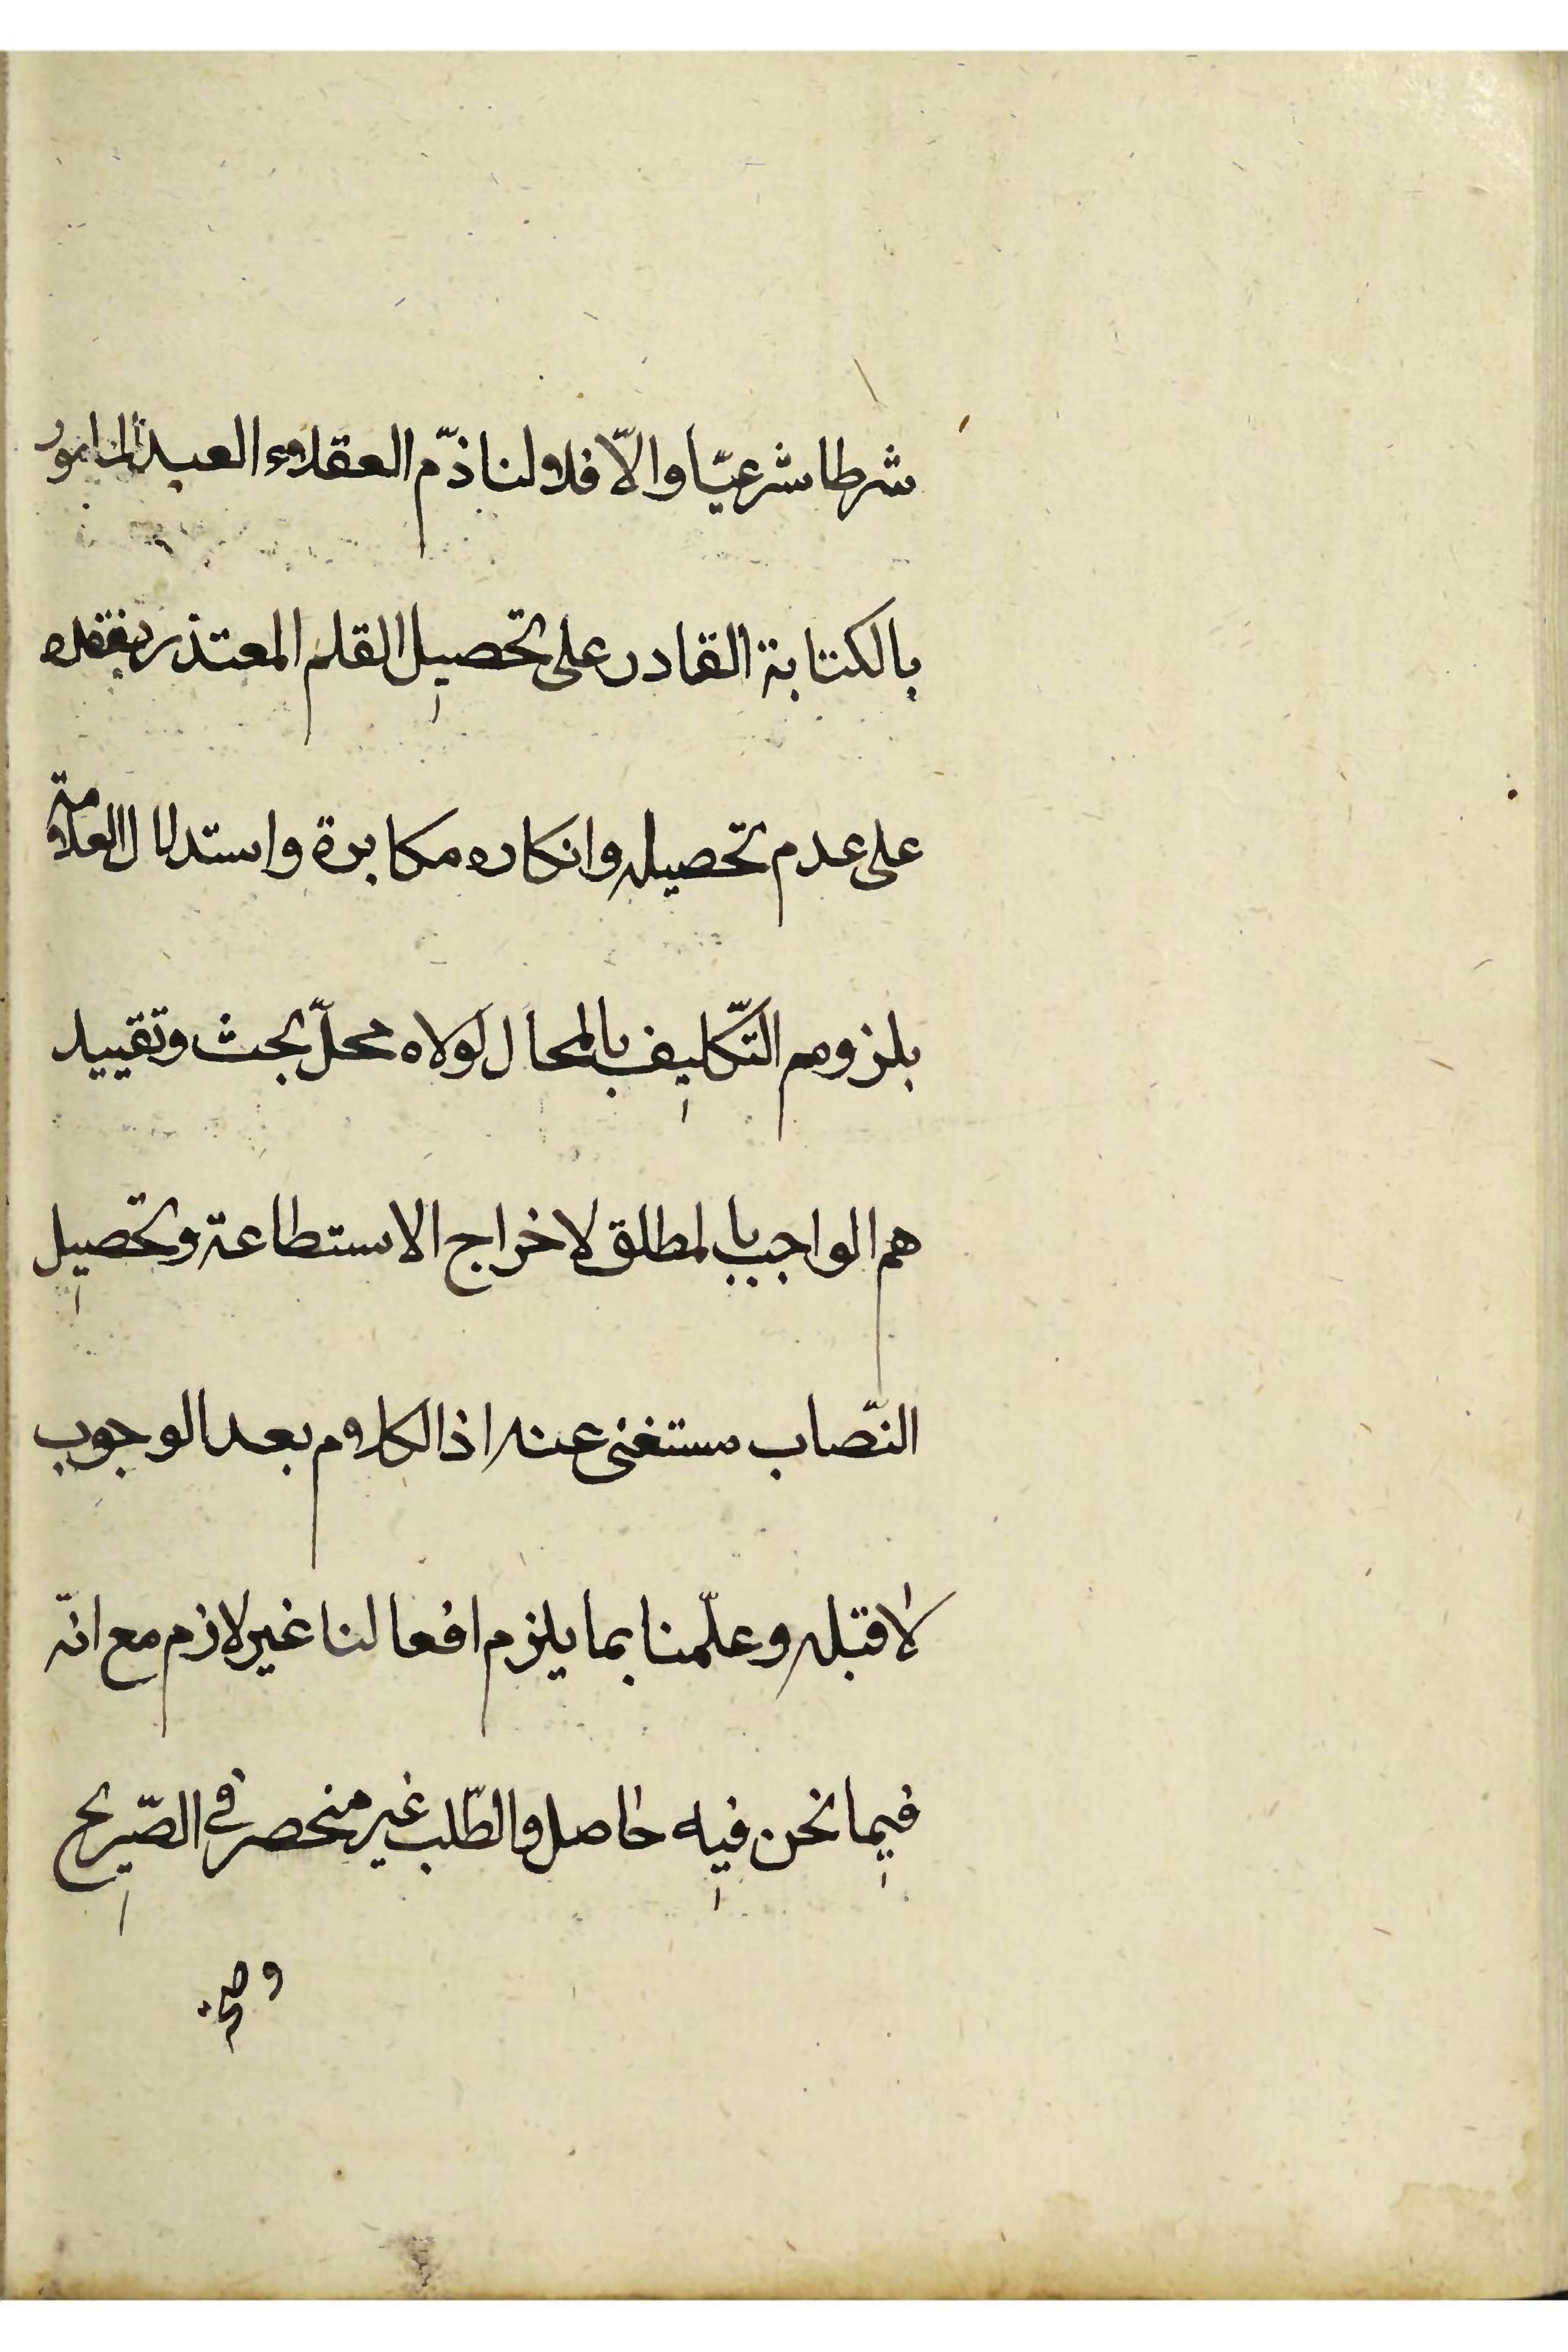 شرطا شرعيّا والّا فلا ولنا ذمّ العقلاء العبد المامور
بالكتابة القادر على تحصيل القلم المعتذر بفقده
على عدم تحصيله وانكاره مكابرة واستدلال العلامة
بلزوم التّكليف بالمحال لولاه محلّ بحث وتقييد
هم الواجب بالمطلق لاخراج الاستطاعة وتحصيل
النّصاب مستغنى عنه اذ الكلام بعد الوجوب
لا قبله وعلّمنا بما يلزم افعالنا غير لازم مع انّه
فيما نحن فيه حاصل والطّلب غير منحصر فى الصّريح